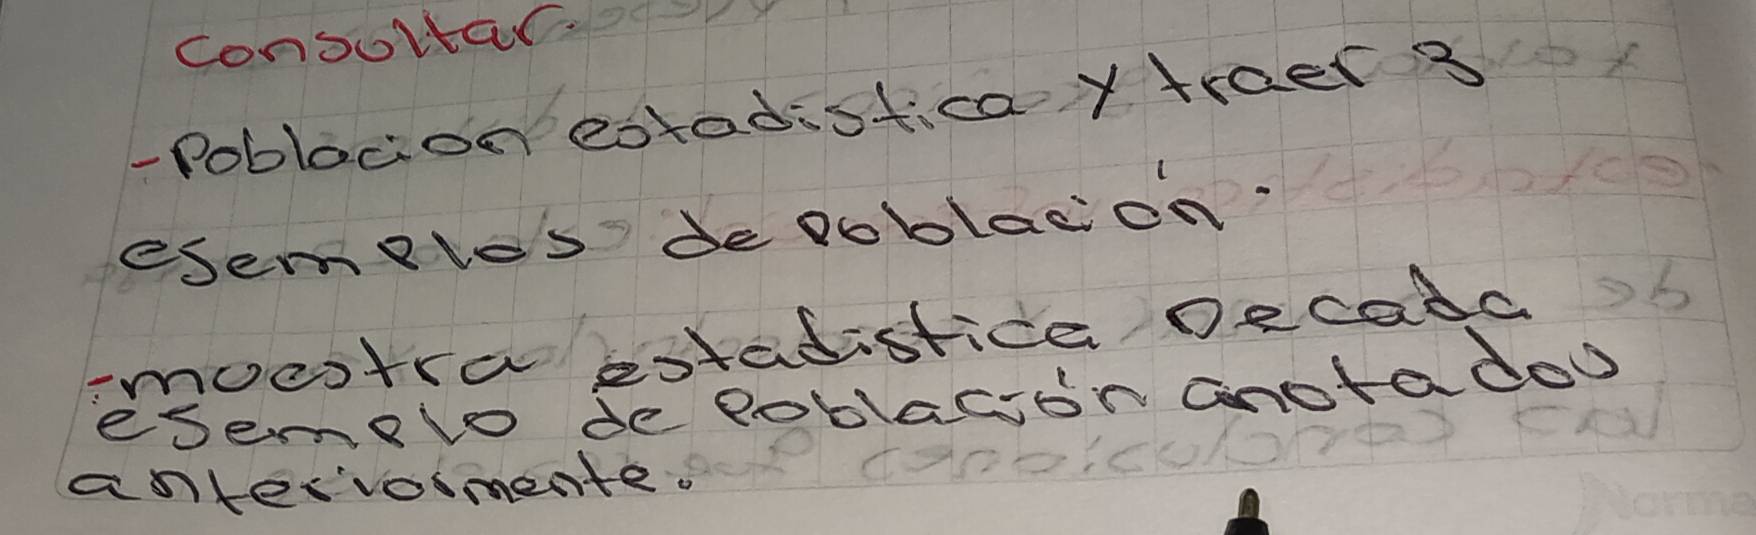 Consultar.
-Poblacion estadistica y traer 3
esemplos de población.
-muestra estadistica De cada
esemplo de Población anotados
anteriormente.
Norma